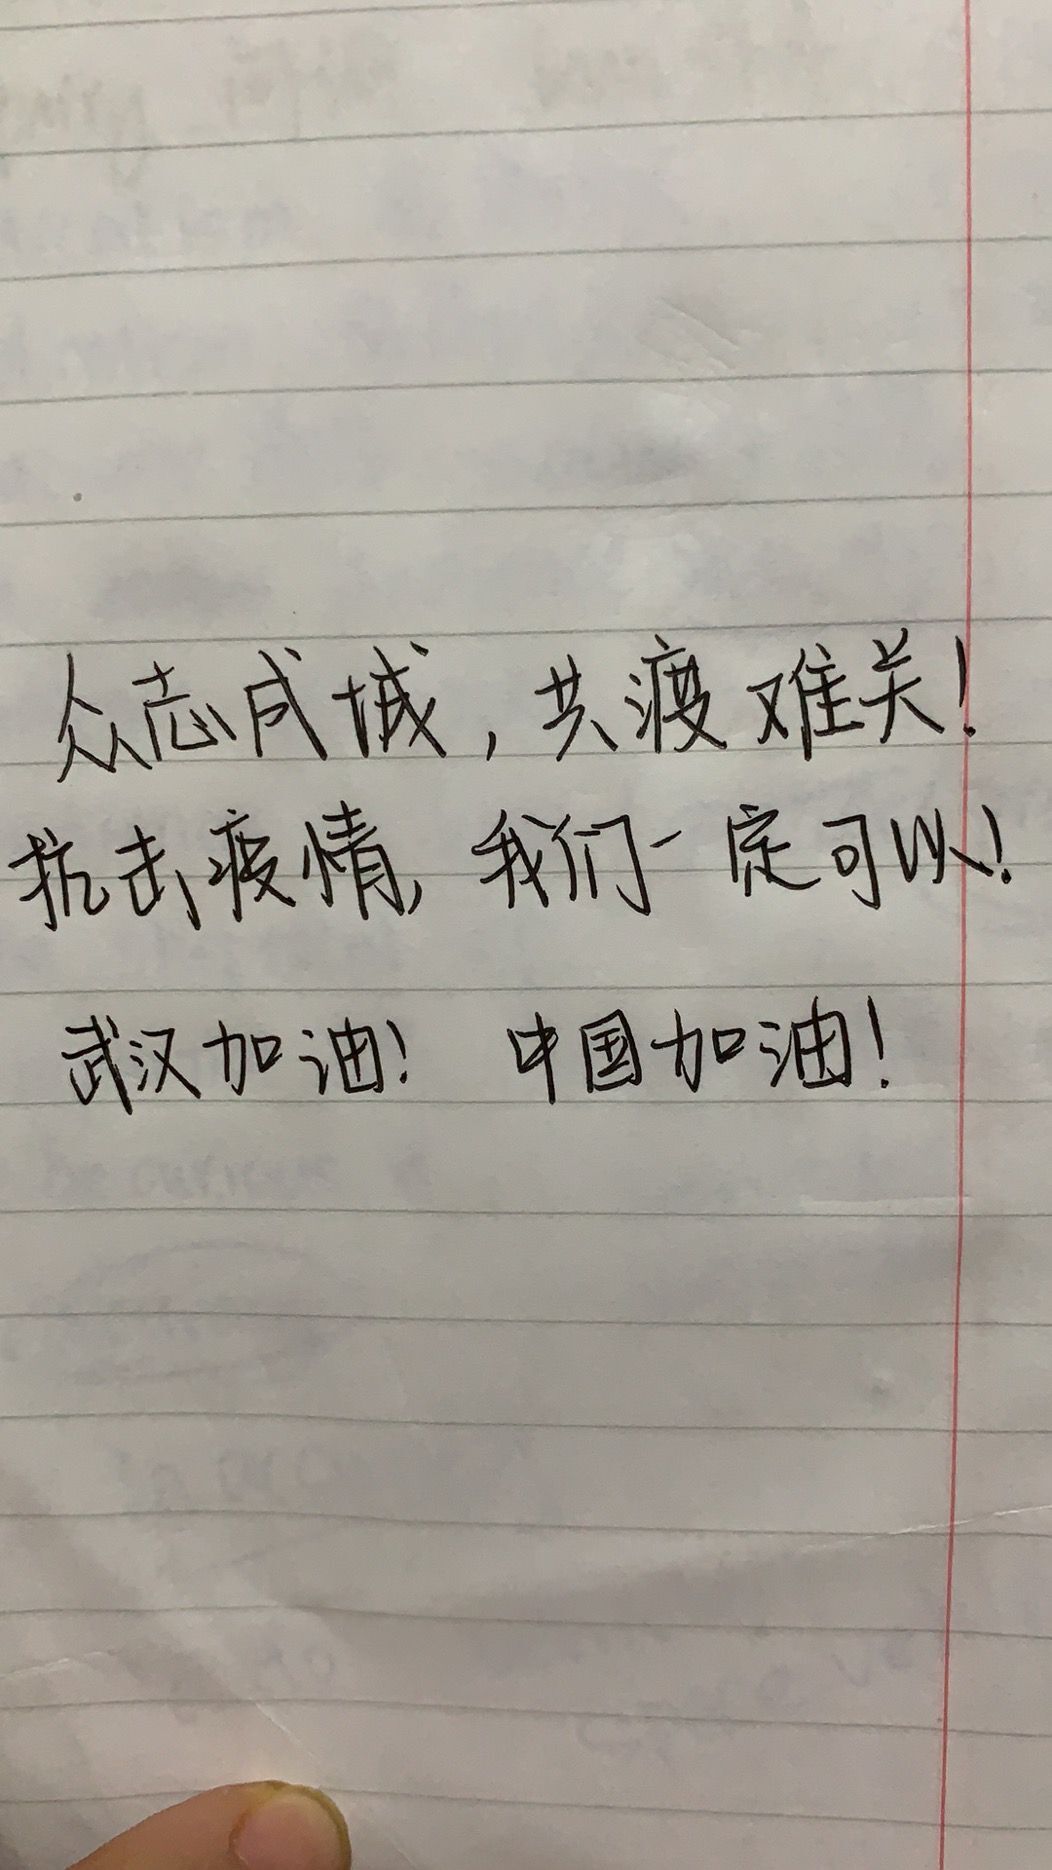 众志成城，共渡难关！
抗击疫情，我们一定可以！
武汉加油！ 中国加油！